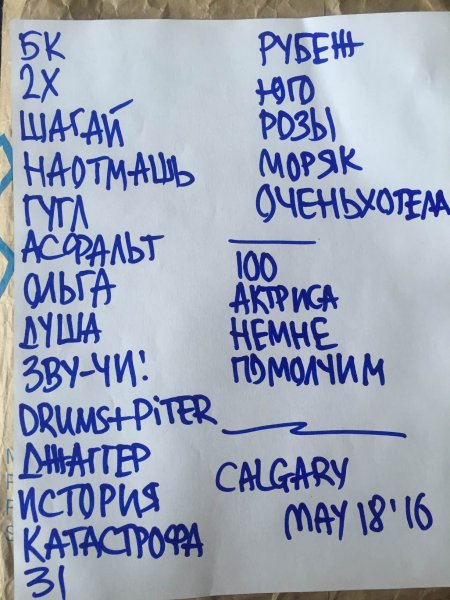 5К
2Х
ШАГАЙ
НАОТМАШЬ
ГУГЛ
АСФАЛЬТ
ОЛЬГА
ДУША
ЗВУ-ЧИ!
DRUMS+PiTER
ДЖАГГЕР
ИСТОРИЯ
КАТАСТРОФА
31
РУБЕЖ
ЮГО
РОЗЫ
МОРЯК
ОЧЕНЬХОТЕЛА
100
АКТРИСА
НЕМНЕ
ПОМОЛЧИМ
CALGARY
MAY 18'16